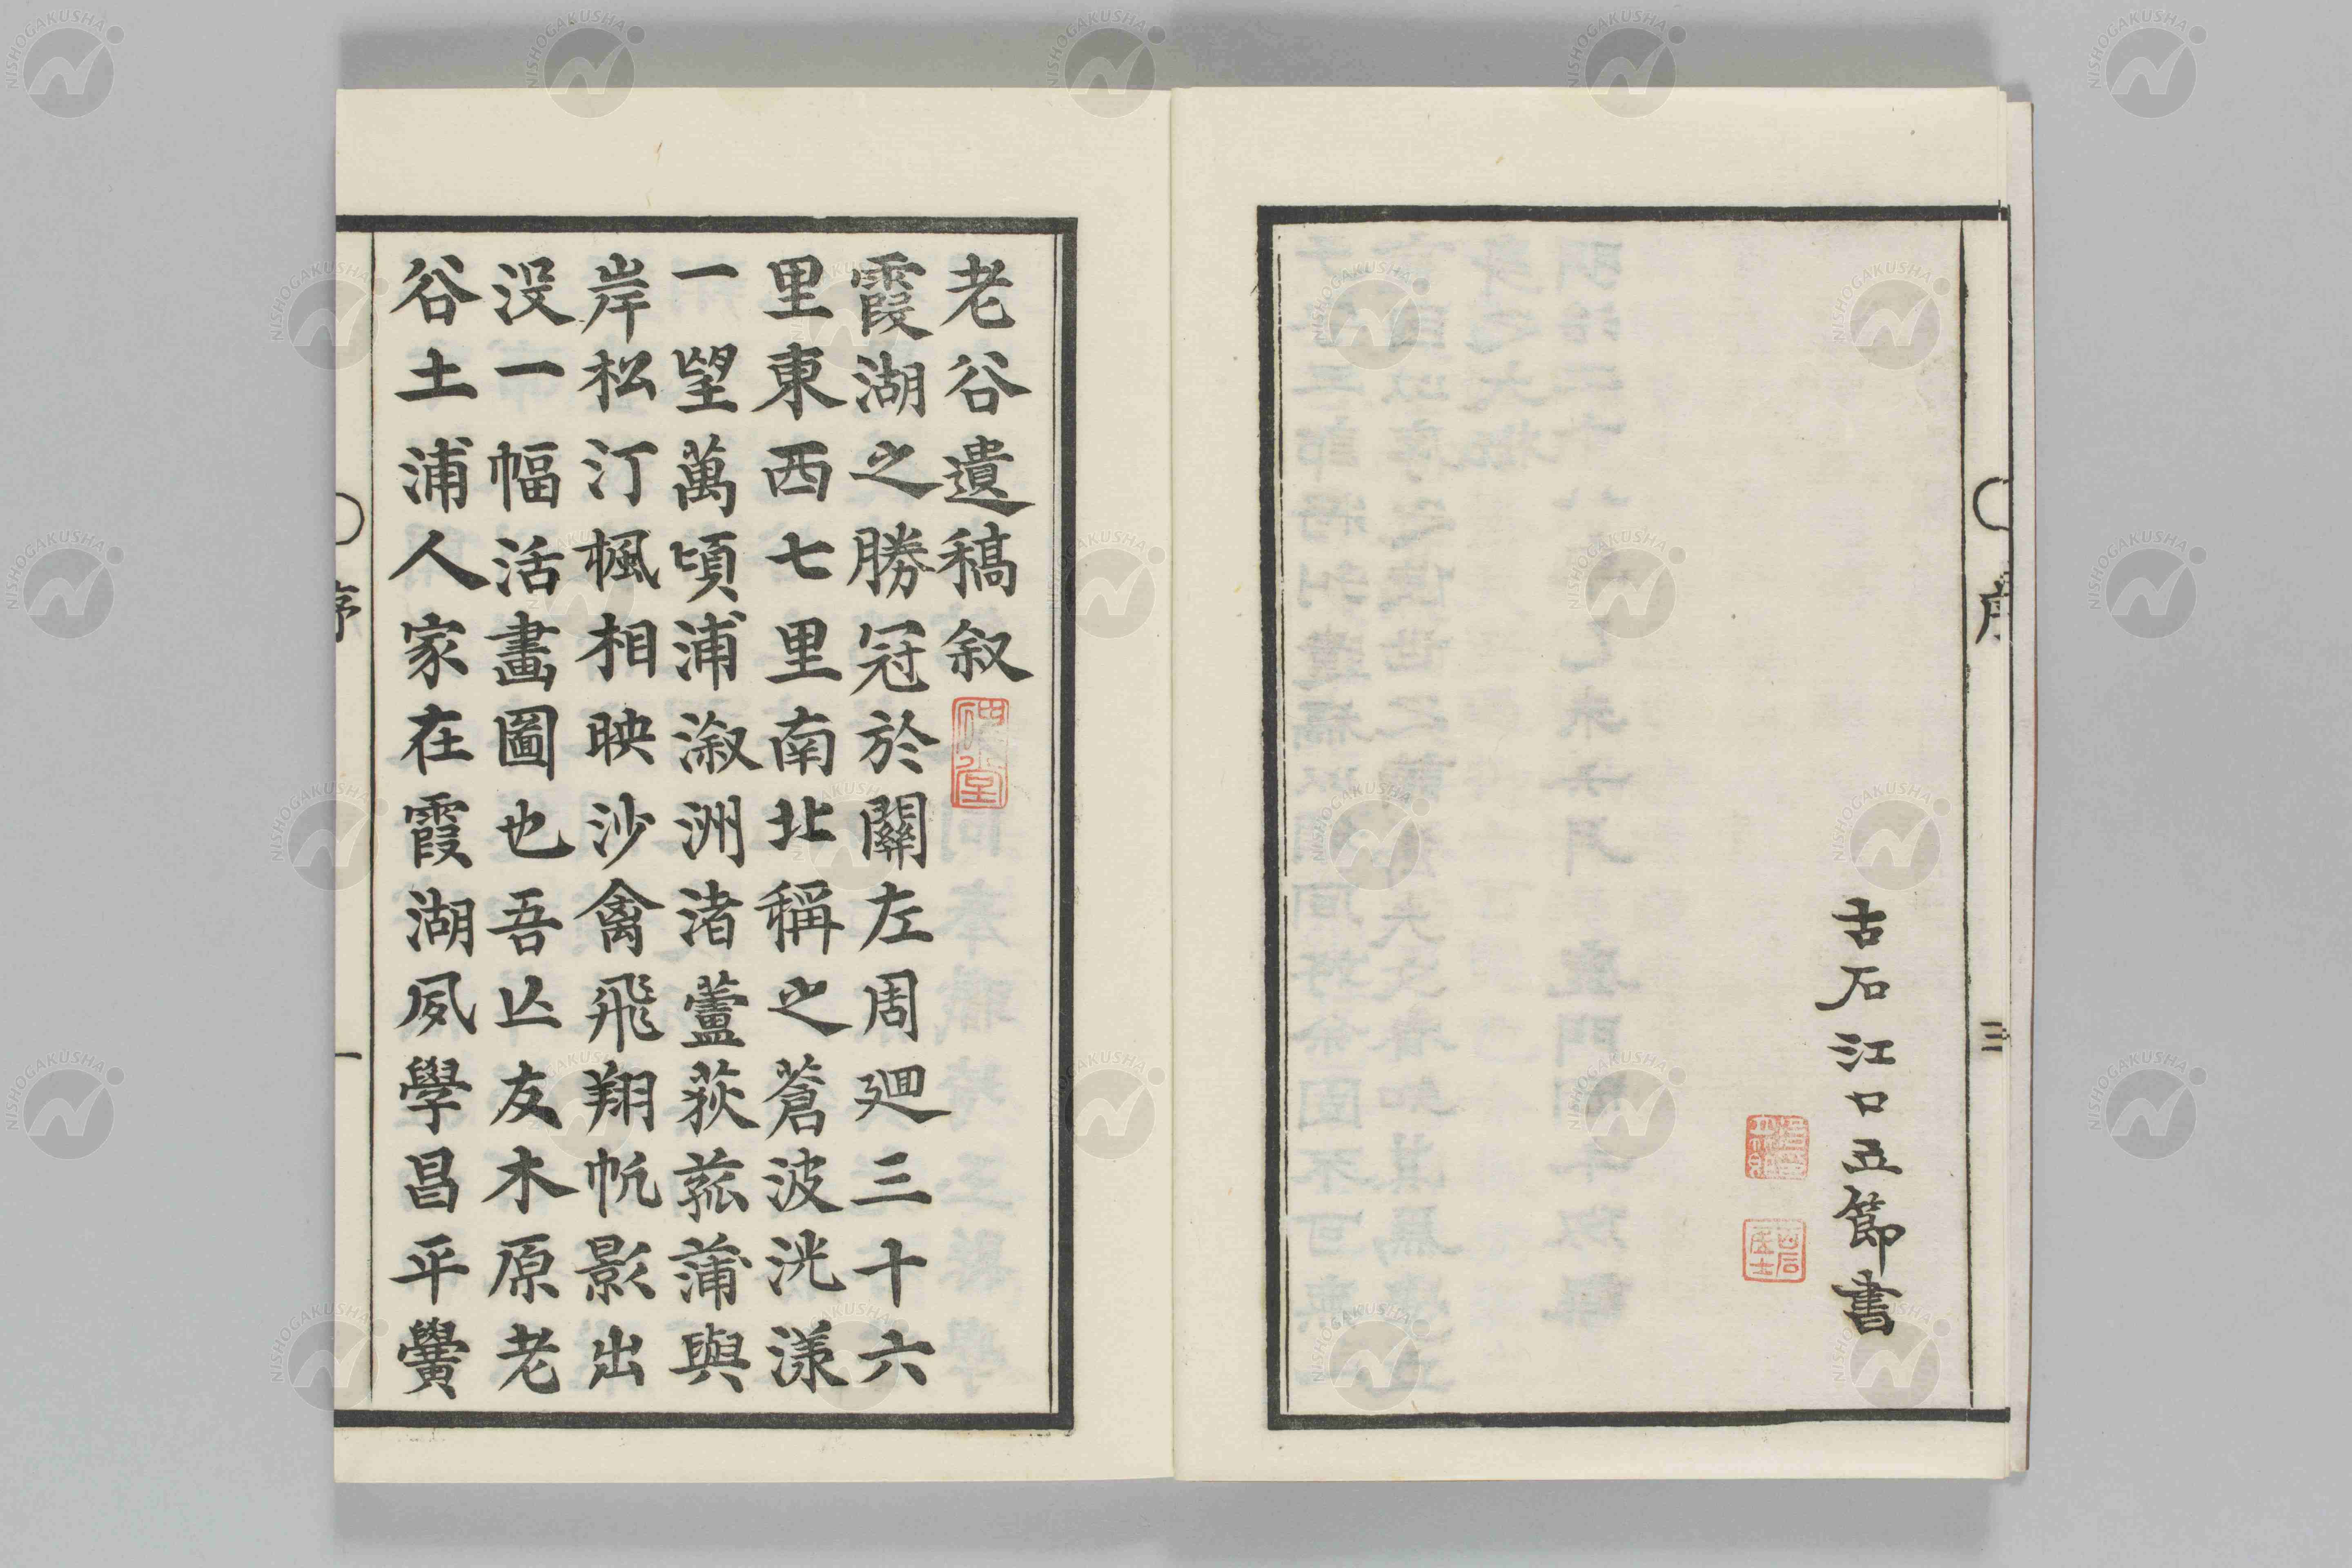 古石江口五節書
序
三
老谷遺稿叙
霞湖之勝冠於關左周廻三十六
里東西七里南北稱之蒼波洸漾
一望萬頃浦溆洲渚蘆荻菰蒲與
岸松汀楓相映沙禽飛翔帆影出
没一幅活畫圖也吾亾友木原老
谷土浦人家在霞湖夙學昌平黌
序
一
NISHOGAKUSHA